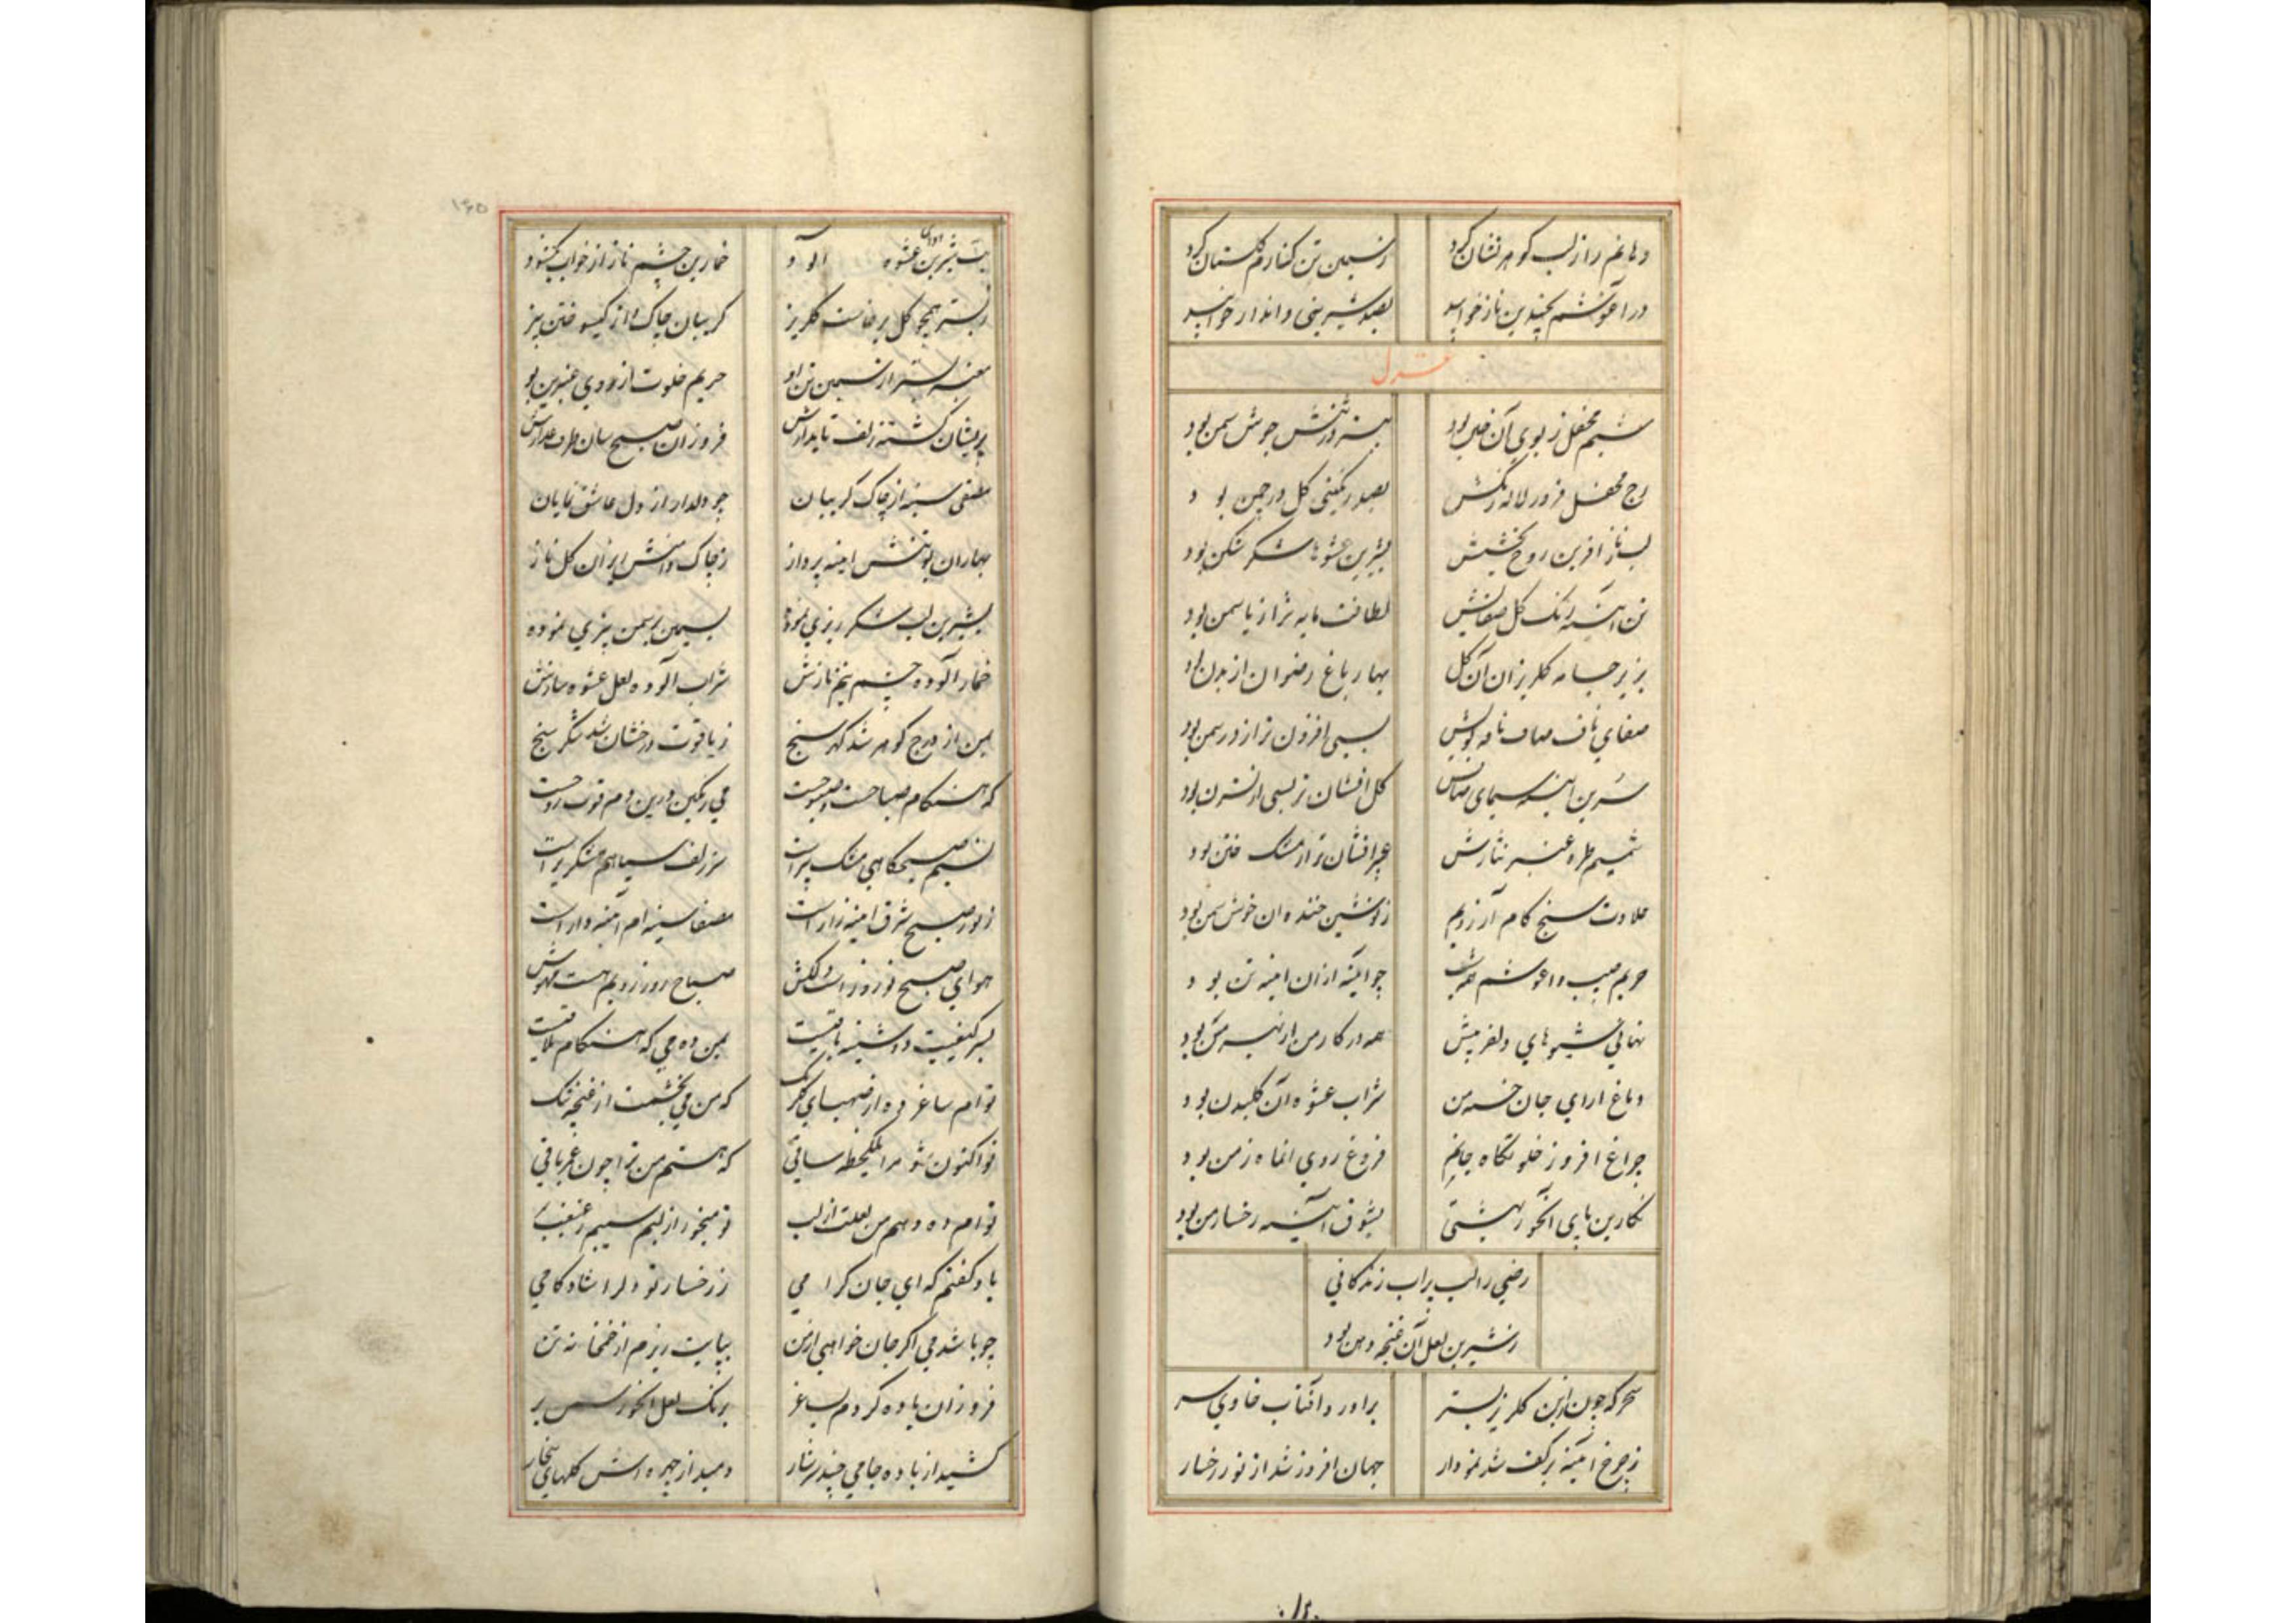 دهانم را ز لب کوهر نشان کرد ز سیمین تن کنارم کلستان کرد
در آغوشم بچندین ناز خوابید بصد شیرینی و انداز خوابید
غزل
شمیم محفل ز بوی آن ختن بود جوش سمن بود
رخ محفل فروز لاله رنکش بصد رنکینی کل در چمن بود
لب ناز افرین روح بخشش بشیرین عشوها شکر شکن بود
تن آینه رنک کل صفایش لطافت مایه تر از یاسمن بود
بزیر جامه کلریز ان آن کل بهار باغ رضوان از بدن بود
صفای ناف صاف نافه بویش بسی افزون تر از در سمن بود
سرین آینه سیمای صافش کل افشان تر بسی از نسترن بود
شمیم طره عنبر نثارش عبیر افشان تر از مشک ختن بود
حلاوت سنج کام آرزویم ز نوشین خنده ان خوش سخن بود
حریم جیب و اغوشم همه شب چو آینه از ان اینه تن بود
نهانی شیوهای دلفریبش همه در کار من از
دماغ ارای جان خسته من شراب عشوه آن کلبدن بود
چراغ افروز خلوتکاه جانم فروغ روی انماه ز من بود
نکارین پای آنحور بهشتی بشوق آینه رخسار من بود
رضی را لب پر اب زندکانی
ز شیرین لعل آن غنچه دهن بود
سحرکه چون ازین کلریز بستر براورد آفتاب خاوری سر
ز چرخ آینه بر کف شد نمودار جهان افروز شد از نور رخسار
۱۶۰
شیرین عشوه خمارین چشم ناز از خواب بکشود
ز بستر همچو کل برخاست کلریز کریبان چاک و از کیسو ختن بیز
معنبر بستر از سیمین تن او حریم خلوت از روی عنبرین بو
پریشان کشته زلف تابدارش فروزان صبح سان طرف عذارش
مصفی سینه از چاک کریبان چو دلدار از دل عاشق نمایان
بهاران بو تنش اینه پرداز ز چاک دامنش ایران کل ناز
بشیرین لب شکر ریزی نموده بسیمین بر سمن بیزی نموده
خمار آلوده چشم نیم نازش شراب آلوده لعل عشوه سازش
بمن از درج کوهر شد کهر سنج ز یاقوت درخشان شد شکر سنج
که هنکام صباحست و صبوحست می رنکین درین دم قوت روحست
نسیم صبحکاهی مشک بیز است سر زلف سیاهم مشکریز است
ز نور صبح شرق اینه زار است مصفا سینه ام آینه دار است
هوای صبح نوروز است دلکش صباح روز رویم هست مهوش
بسر کیفیت دوشینه باقیست بمن ده می که هنکام تلاقیست
توام ساغر ده از صهبای کلرنک که من می بخشمت از غنچه تنک
تو اکنون شو مرا یکلحظه ساقی که هستم من ترا چون عمر باقی
توام ده دهم من لعلت از لب تو میخور از لبم سیب ز غبغب
باو کفتم که ای جان کرامی ز رخسار تو دلرا شادکامی
چو باشد می اکر جان خواهی از من بپایت ریزم از خمخانه تن
فروزان باده کردم بساغر برنک لعل آنحور
کشید از باده جامی چند سرشار دمید از چهره اتش کلهای بیخار